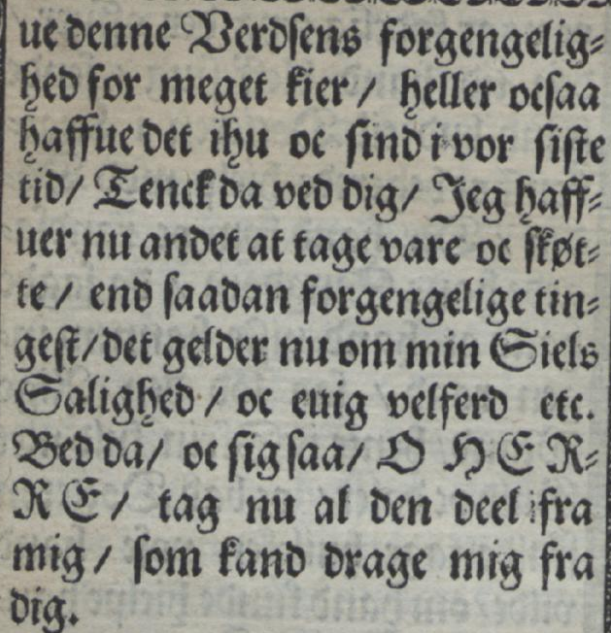 ue denne Verdsens forgengelig-
hed for meget kier / heller ocsaa
haffue det ihu oc sind i vor siste
tid / Tenck da ved dig / Jeg haff-
uer nu andet at tage vare oc skøt-
te / end saadan forgengelige tin-
gest / det gelder nu om min Siels
Salighed / oc euig velferd etc.
Bed da / oc sig saa / O HER-
RE / tag nu al den deel ifra
mig / som kand drage mig fra
dig.